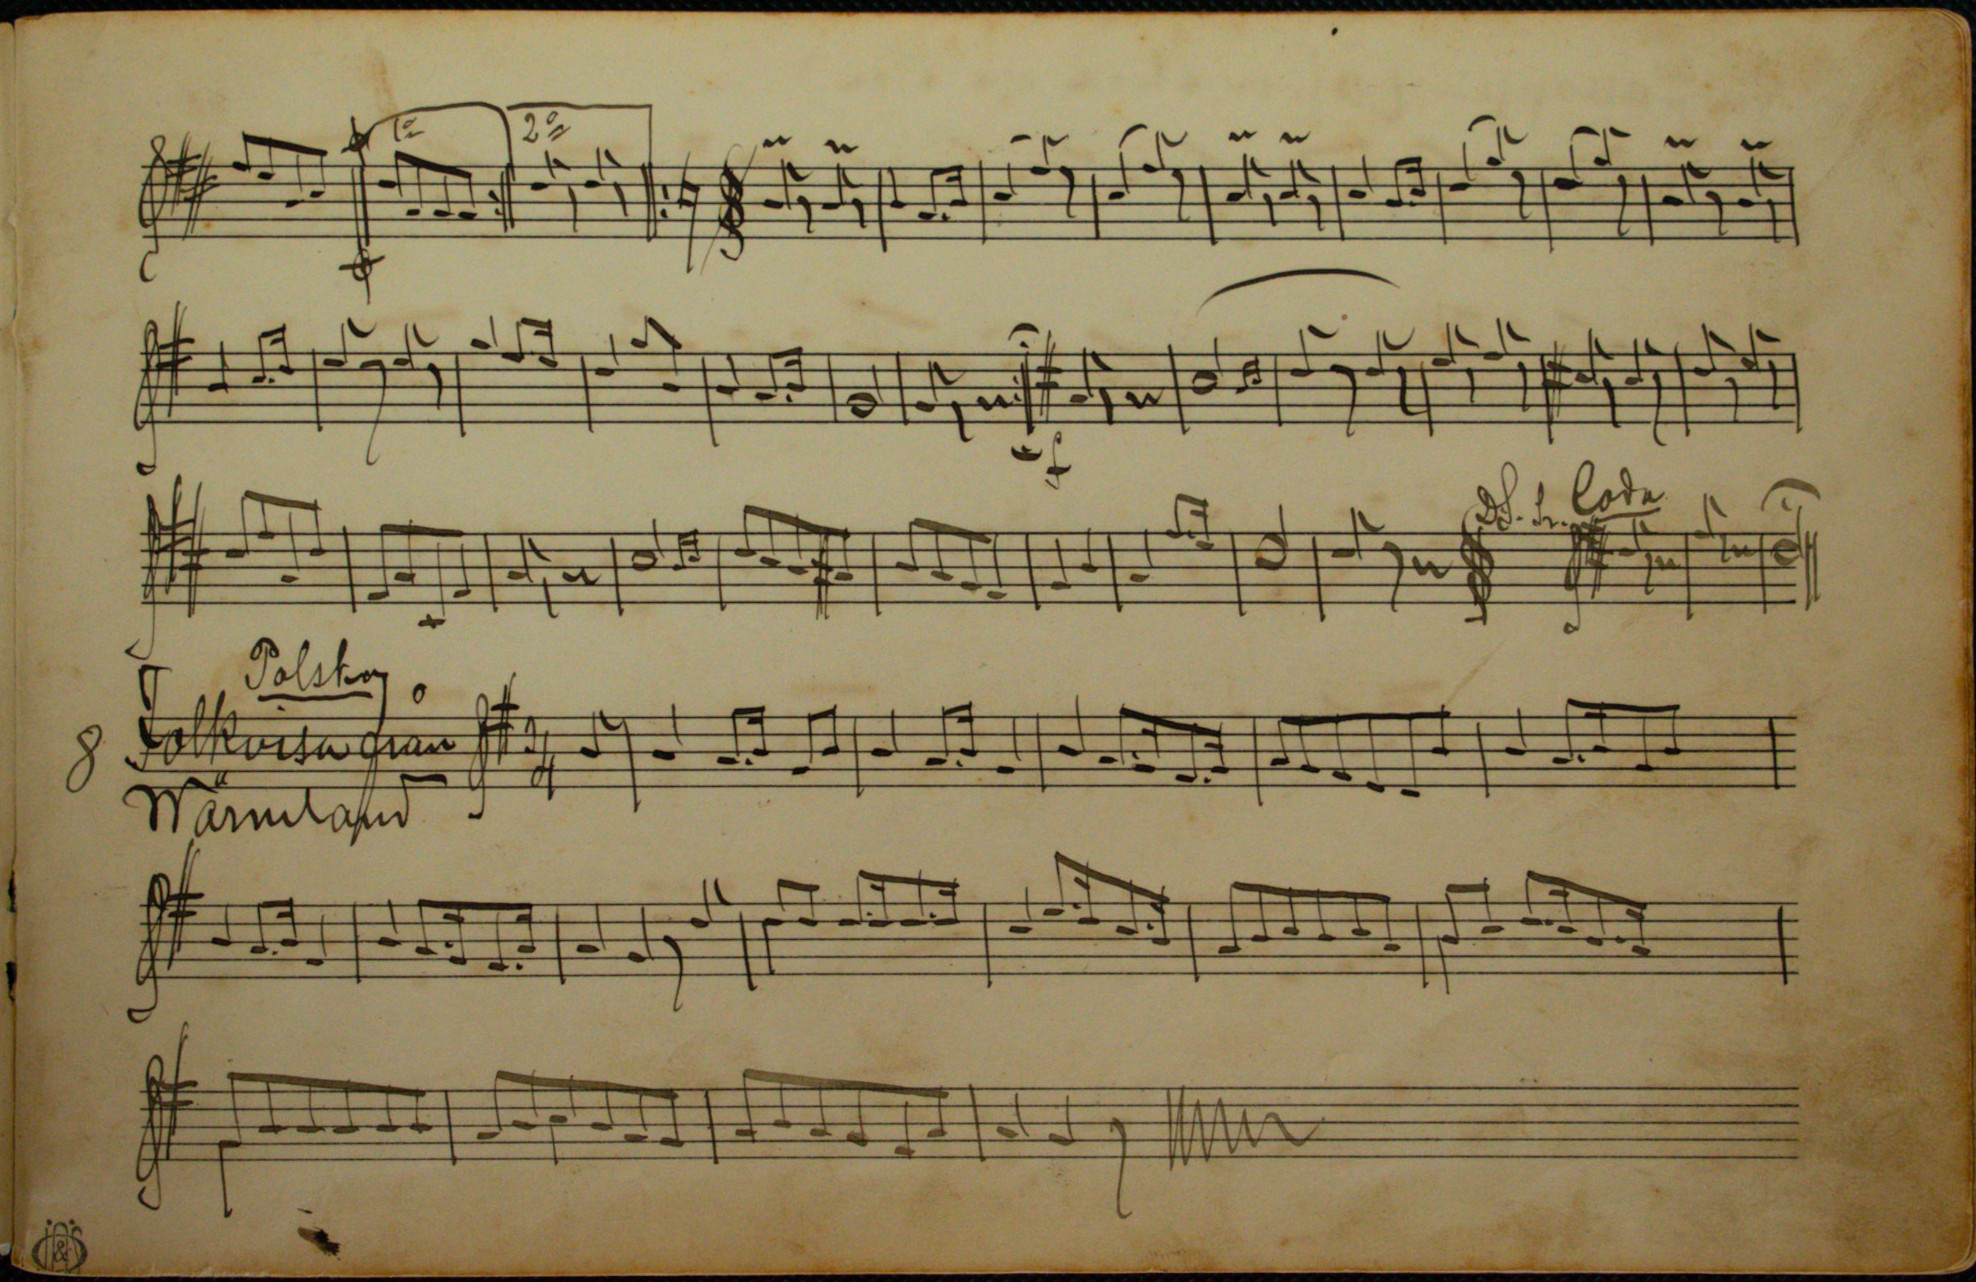 1º 2º
f
D.S. Coda
Polska
8 Folkvisa från
Wärmland
3/4